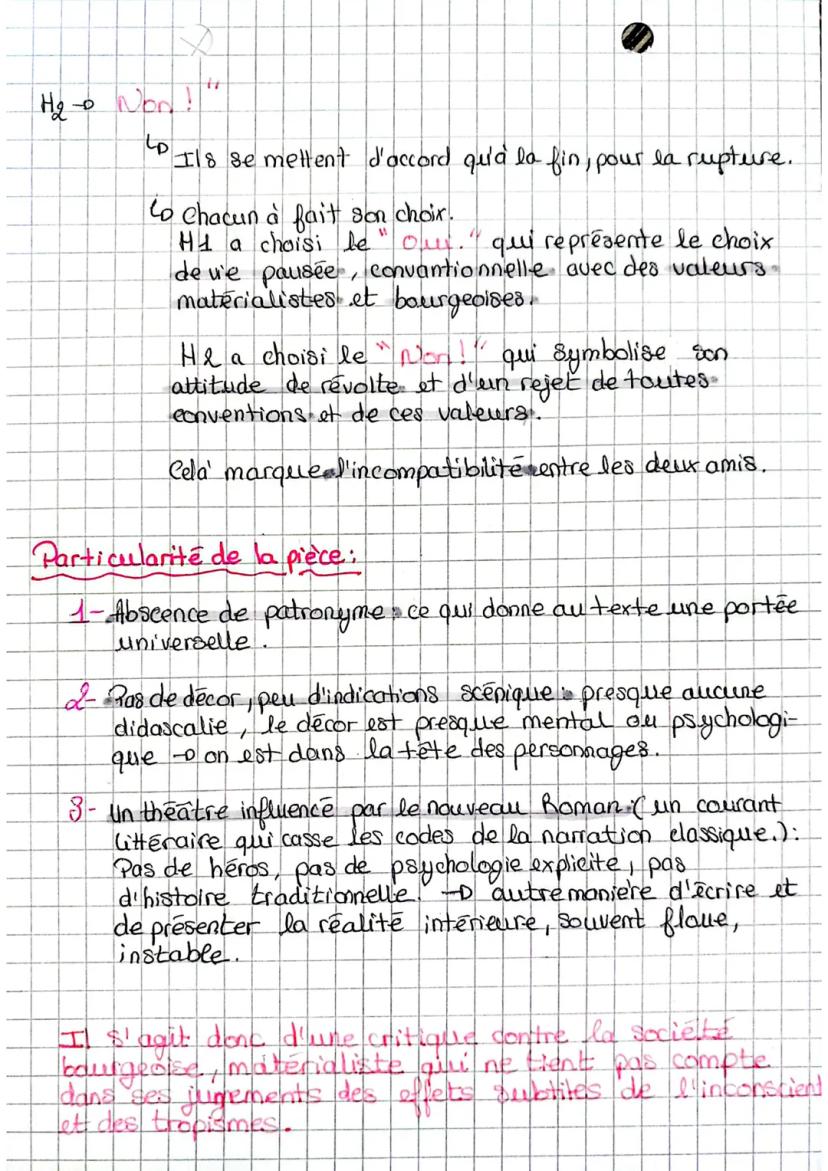 H2 → Non ! "
↳ Ils se mettent d'accord qu'à la fin, pour la rupture.
↳ Chacun à fait son choix.
H1 a choisi le " Oui. " qui représente le choix
de vie pausée, convantionnelle avec des valeurs
matérialistes et bourgeoises.
H2 a choisi le " Non ! " qui symbolise son
attitude de révolte et d'un rejet de toutes
conventions et de ces valeurs.
Celà marque l'incompatibilité entre les deux amis.
Particularité de la pièce :
1- Abscence de patronyme : ce qui donne au texte une portée
universelle.
2- Pas de décor, peu d'indications scénique : presque aucune
didascalie, le décor est presque mental ou psychologi-
que → on est dans la tête des personnages.
3- Un théâtre influencé par le nouveau Roman : ( un courant
littéraire qui casse les codes de la narration classique. ) :
Pas de héros, pas de psychologie explicite, pas
d'histoire traditionnelle. → autre manière d'écrire et
de présenter la réalité intérieure, souvent floue,
instable.
Il s'agit donc d'une critique contre la société
bourgeoise, matérialiste qui ne tient pas compte
dans ses jugements des effets subtiles de l'inconscient
et des tropismes.